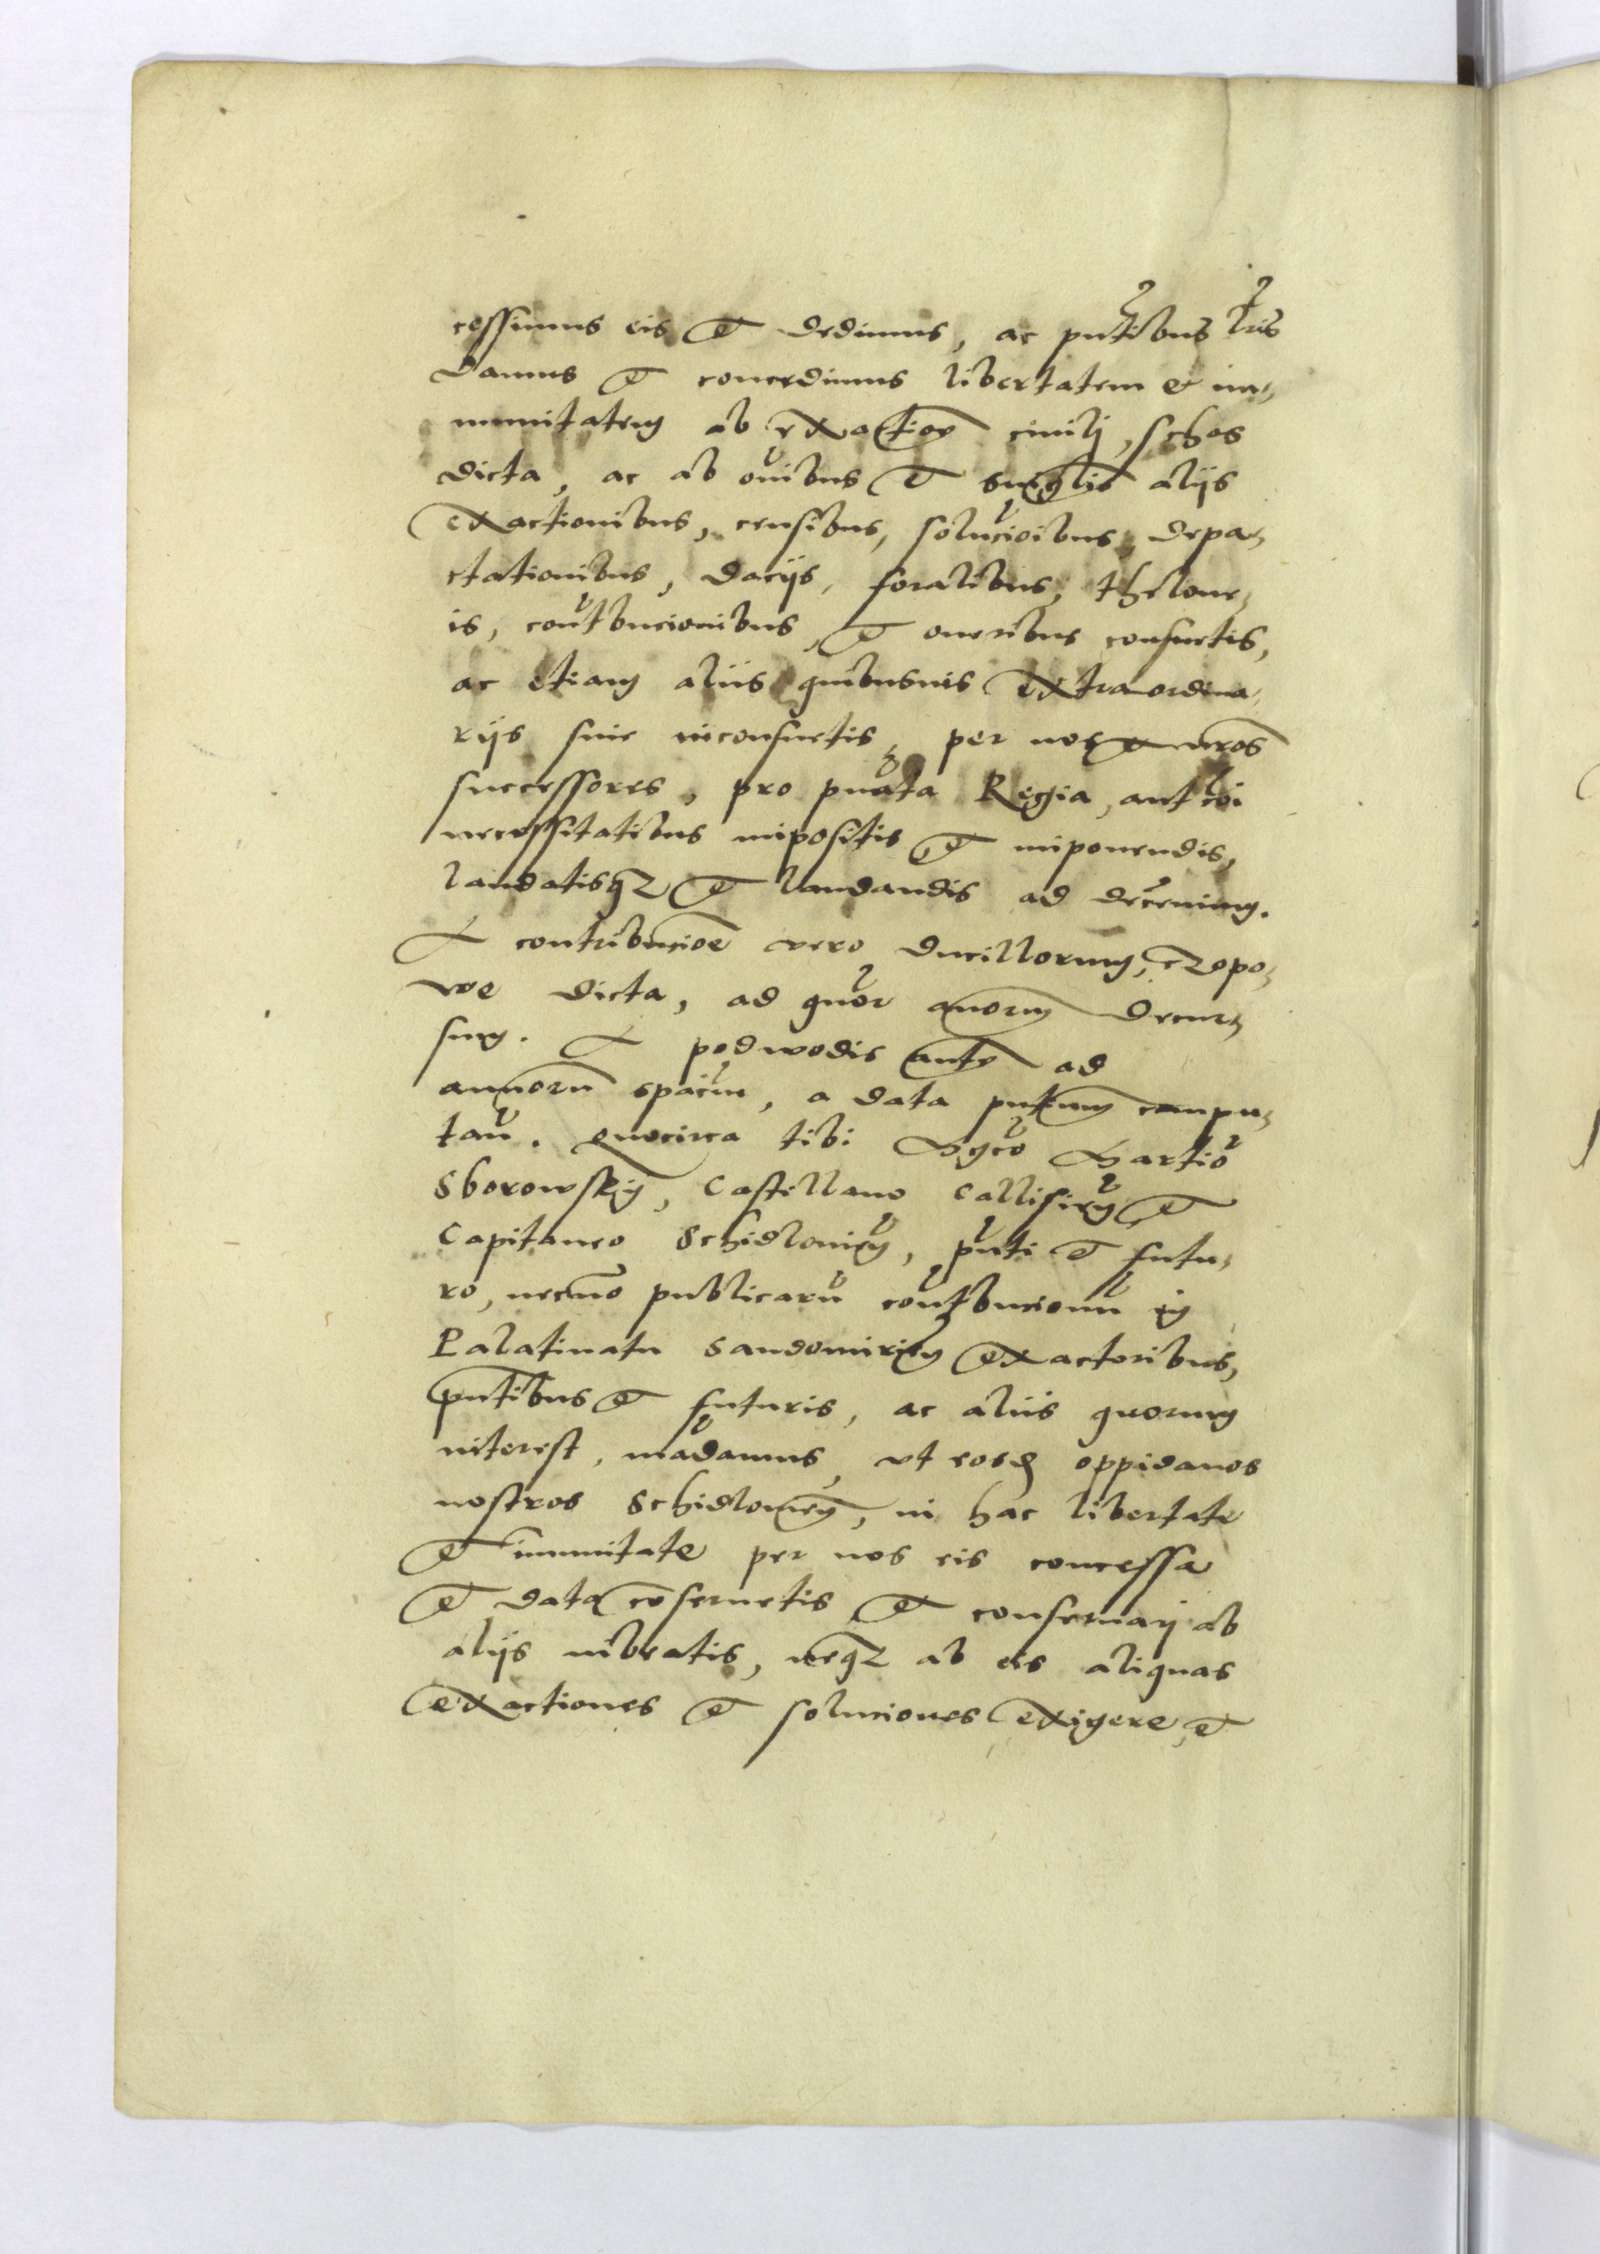 cessimus eis et dedimus, ac pntibus lris
damus et concedimus libertatem et im-
munitatem ab exactioe ciuilj, schos
dicta, ac ab oibus et singlis alijs
exactionibus, censibus, solucioibus, depa-
ctationibus, dacijs, foralibus, thelone-
is, contbucionibus, et oneribus consuetis,
ac etiam aliis quibusuis extraordina-
rijs siue inconsuetis, per nos et nros
successores, pro puata Regia, aut coi
necessitatibus impositis et imponendis,
laudatisqz et laudandis ad decenium.
A contribucioe vero ducillorum, czopo-
we dicta, ad quor annorum decur-
sum. A podwodis autem ad
annorum spacium, a data pntium compu-
tan. Quocirca tibi Mgco Martio
Sborowskij, Castellano Callisien et
Capitaneo Schidlouien, pnti et futu-
ro, necno publicaru contbucionu in
Palatinatu Sandomirien exactoribus,
pntibus et futuris, ac aliis quorum
interest, madamus, vt eosd oppidanos
nostros Schidlouien, in hac libertate
et immunitate per nos eis concessa
et data coseruetis et conseruarj ab
alijs iubeatis, neqz ab eis aliquas
exactiones et soluciones exigere, et